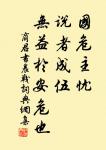 國危主忧
說者成伍
無益於安危也
商君書農戰詞典網集